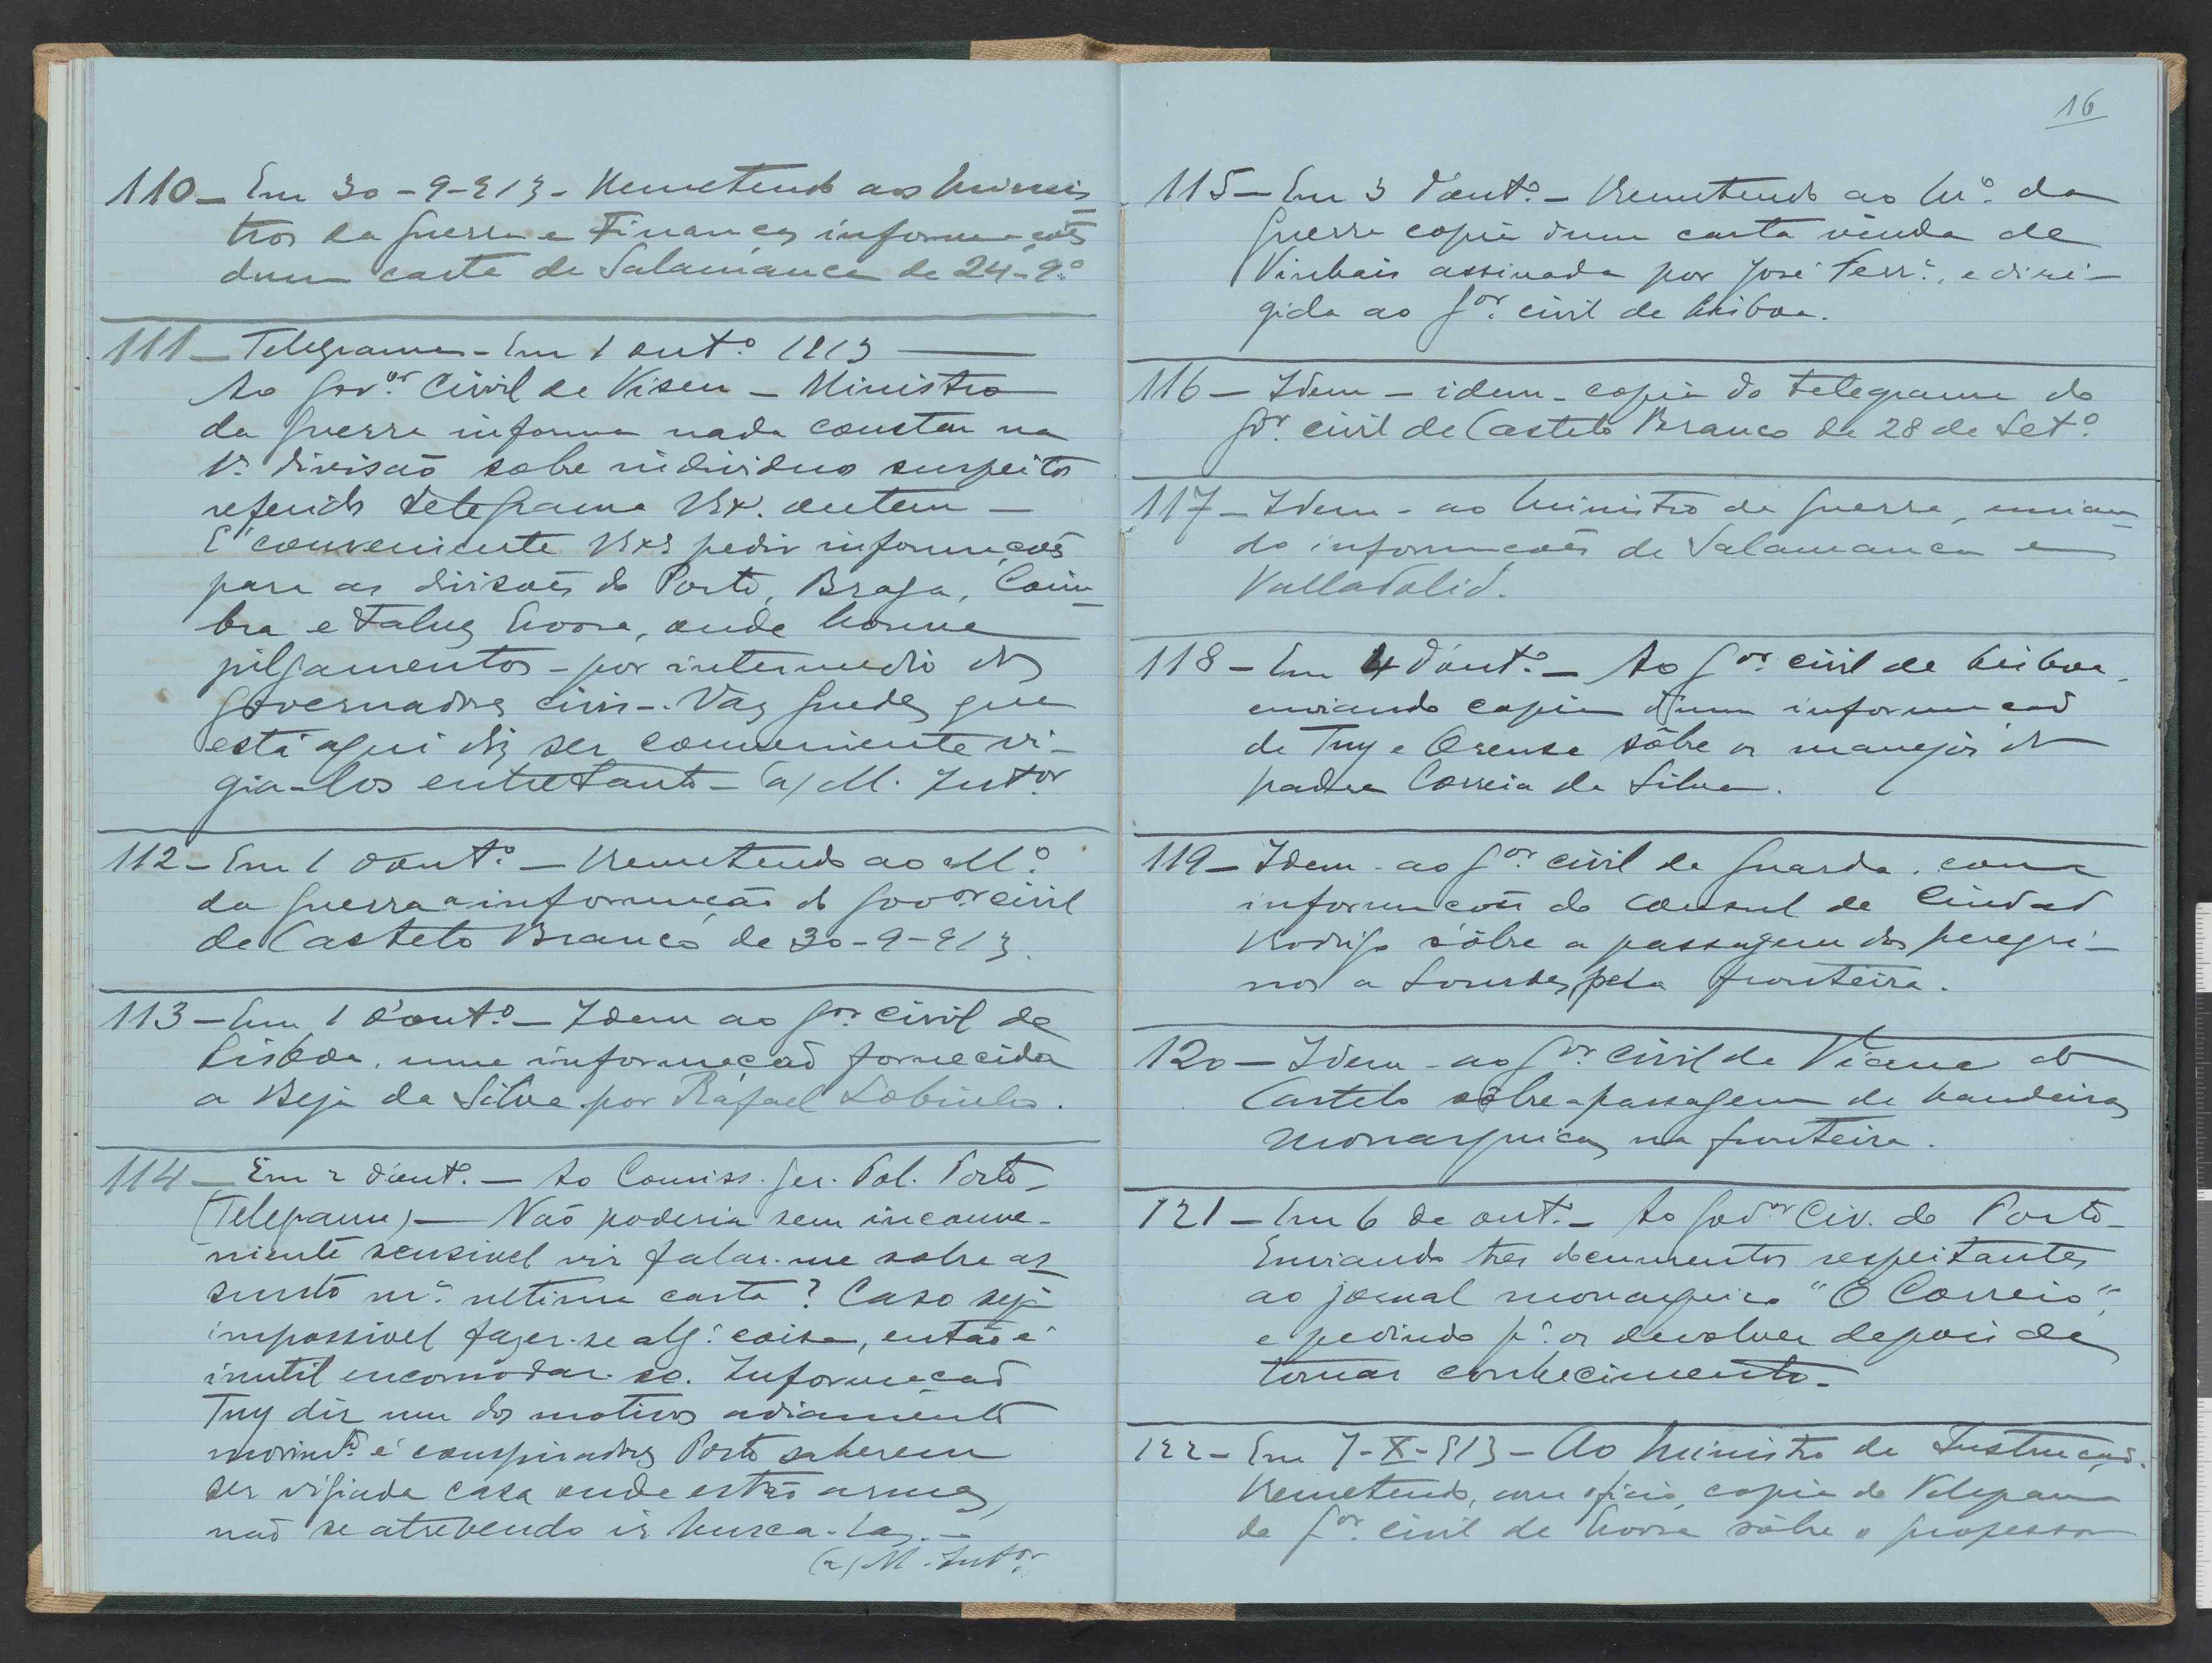 110 - Em 30-9-913 - Remetendo aos Minis
tros da Guerra e Finanças informações
duma carta de Salamanca de 24-9º
111 - Telegrama - Em 1 outº 1913
Ao Gov.or Civil de Viseu - Ministro
da Guerra informa nada constar na
divisão sobre individuos suspeitos
referido telegrama VEx. ontem -
E' conveniente VExª pedir informações
para as divisões do Porto, Braga, Coim-
bra e talvez Evora, onde houve
julgamentos - por intermedio dos
governadores civis -. Vaz Guedes que
está aqui diz ser conveniente vi-
gia-los entretanto - (a) M. Intor
112 - Em 1 d'outº - Remetendo ao Mº
da Guerra a informação do Govor civil
de Castelo Branco de 30-9-913.
113 - Em 1 d'outº - Idem ao Gor civil de
Lisboa, uma informação fornecida
a Beja da Silva por Rafael Sobinho.
114 - Em 2 d'outº. - Ao Comiss. Ger. Pol. Porto -
(Telegrama) - Não poderia sem inconve-
niente sensivel vir falar-me sobre as
sunto mª ultima carta? Caso seja
impossivel fazer-se algª coisa, então é
inutil encomodar-se. Informação
Tuy diz um dos motivos adiamento
movimtº é conspiradores Porto saberem
ser vigiada casa onde estão armas,
não se atrevendo ir busca-las. -
(a) M. Intor
16
115 - Em 3 d'outº - Remetendo ao Mº da
Guerra copia duma carta vinda de
Vinhais assinada por José Ferrª, e diri-
gida ao Gor civil de Lisboa.
116 - Idem - idem - copia do telegrama do
Gor civil de Castelo Branco de 28 de Setº
117 - Idem - ao Ministro da Guerra, envian-
do informações de Salamanca e
Valladolid.
118 - Em 4 d'outº - Ao Gor civil de Lisboa,
enviando copia d'uma informação
de Tuy e Orense sôbre os manejos do
padre Correia da Silva.
119 - Idem - ao Gor civil da Guarda, com
informações do consul de Ciudad
Rodrigo sôbre a passagem dos peregri-
nos a Lourdes, pela fronteira.
120 - Idem - ao Gor civil de Viana do
Castelo sôbre a passagem de bandeiras
monarquicas na fronteira.
121 - Em 6 de outº - Ao Govor Civ. do Porto -
Enviando tres documentos respeitantes
ao jornal monarquico "O Correio",
e pedindo pª os devolver depois de
tomar conhecimento -
122 - Em 7-X-913 - Ao Ministro da Instrução.
Remetendo, com oficio, copia do telegrama
do Gor civil de Evora sôbre o professor